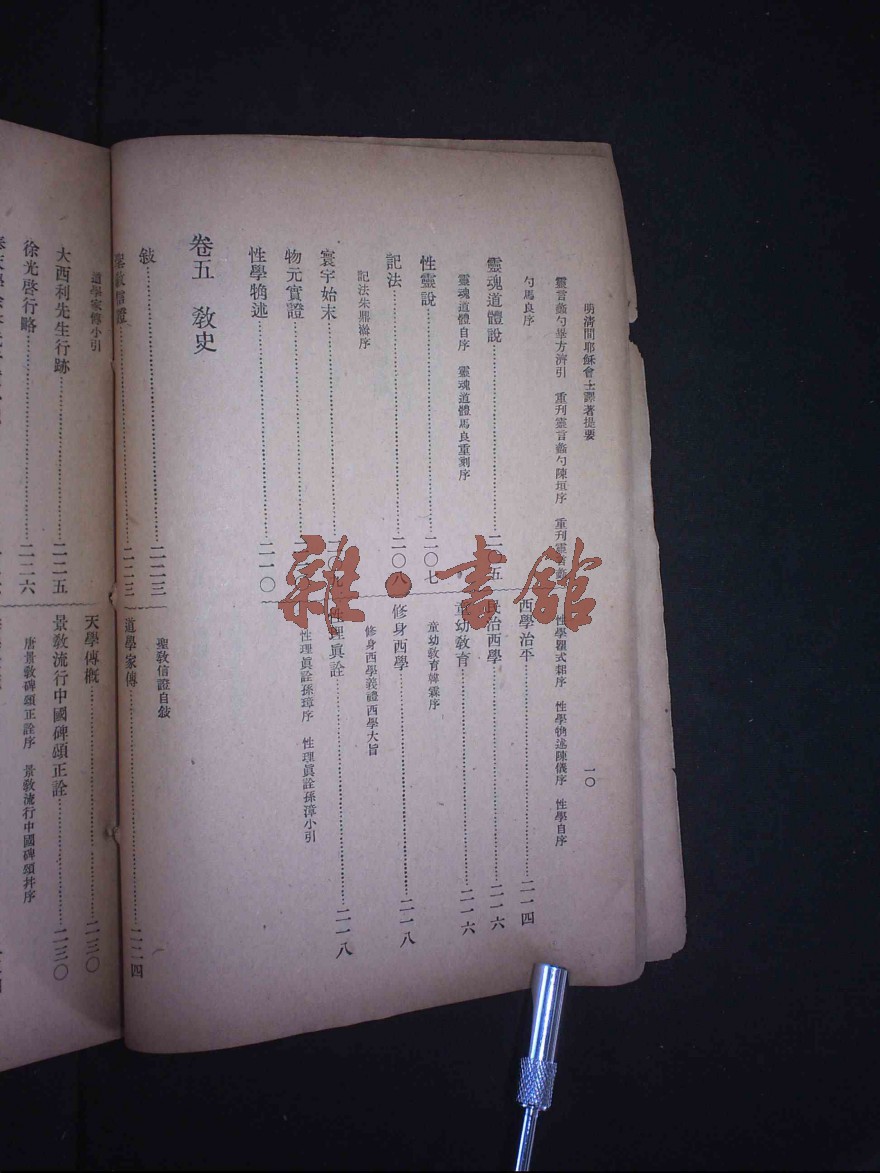 明清間耶穌會士譯著提要
一〇
靈言蠡勺畢方濟引 重刊靈言蠡勺陳垣序 重刊靈言蠡
勺馬良序
靈魂道體說……二〇五
靈魂道體自序 靈魂道體馬良重刻序
性靈說……二〇七
記法……二〇八
記法朱鼎澣序
寰宇始末……二〇九
物元實證……二
性學觕述……二一〇
性學瞿式耜序 性學觕述陳儀序 性學自序
西學治平……二一四
民治西學……二一六
童幼教育……二一六
童幼教育韓霖序
修身西學……二一八
修身西學義禮西學大旨
性理眞詮……二一八
性理眞詮孫璋序 性理眞詮孫漳小引
卷五 教史
敍……二二三
聖教信證……二二三
聖教信證自敍
道學家傳……二二四
道學家傳小引
大西利先生行跡……二二五
徐光啓行略……二二六
天學傳槪……二三〇
景教流行中國碑頌正詮……二三〇
唐景教碑頌正詮序 景教流行中國碑頌幷序
雜·書館